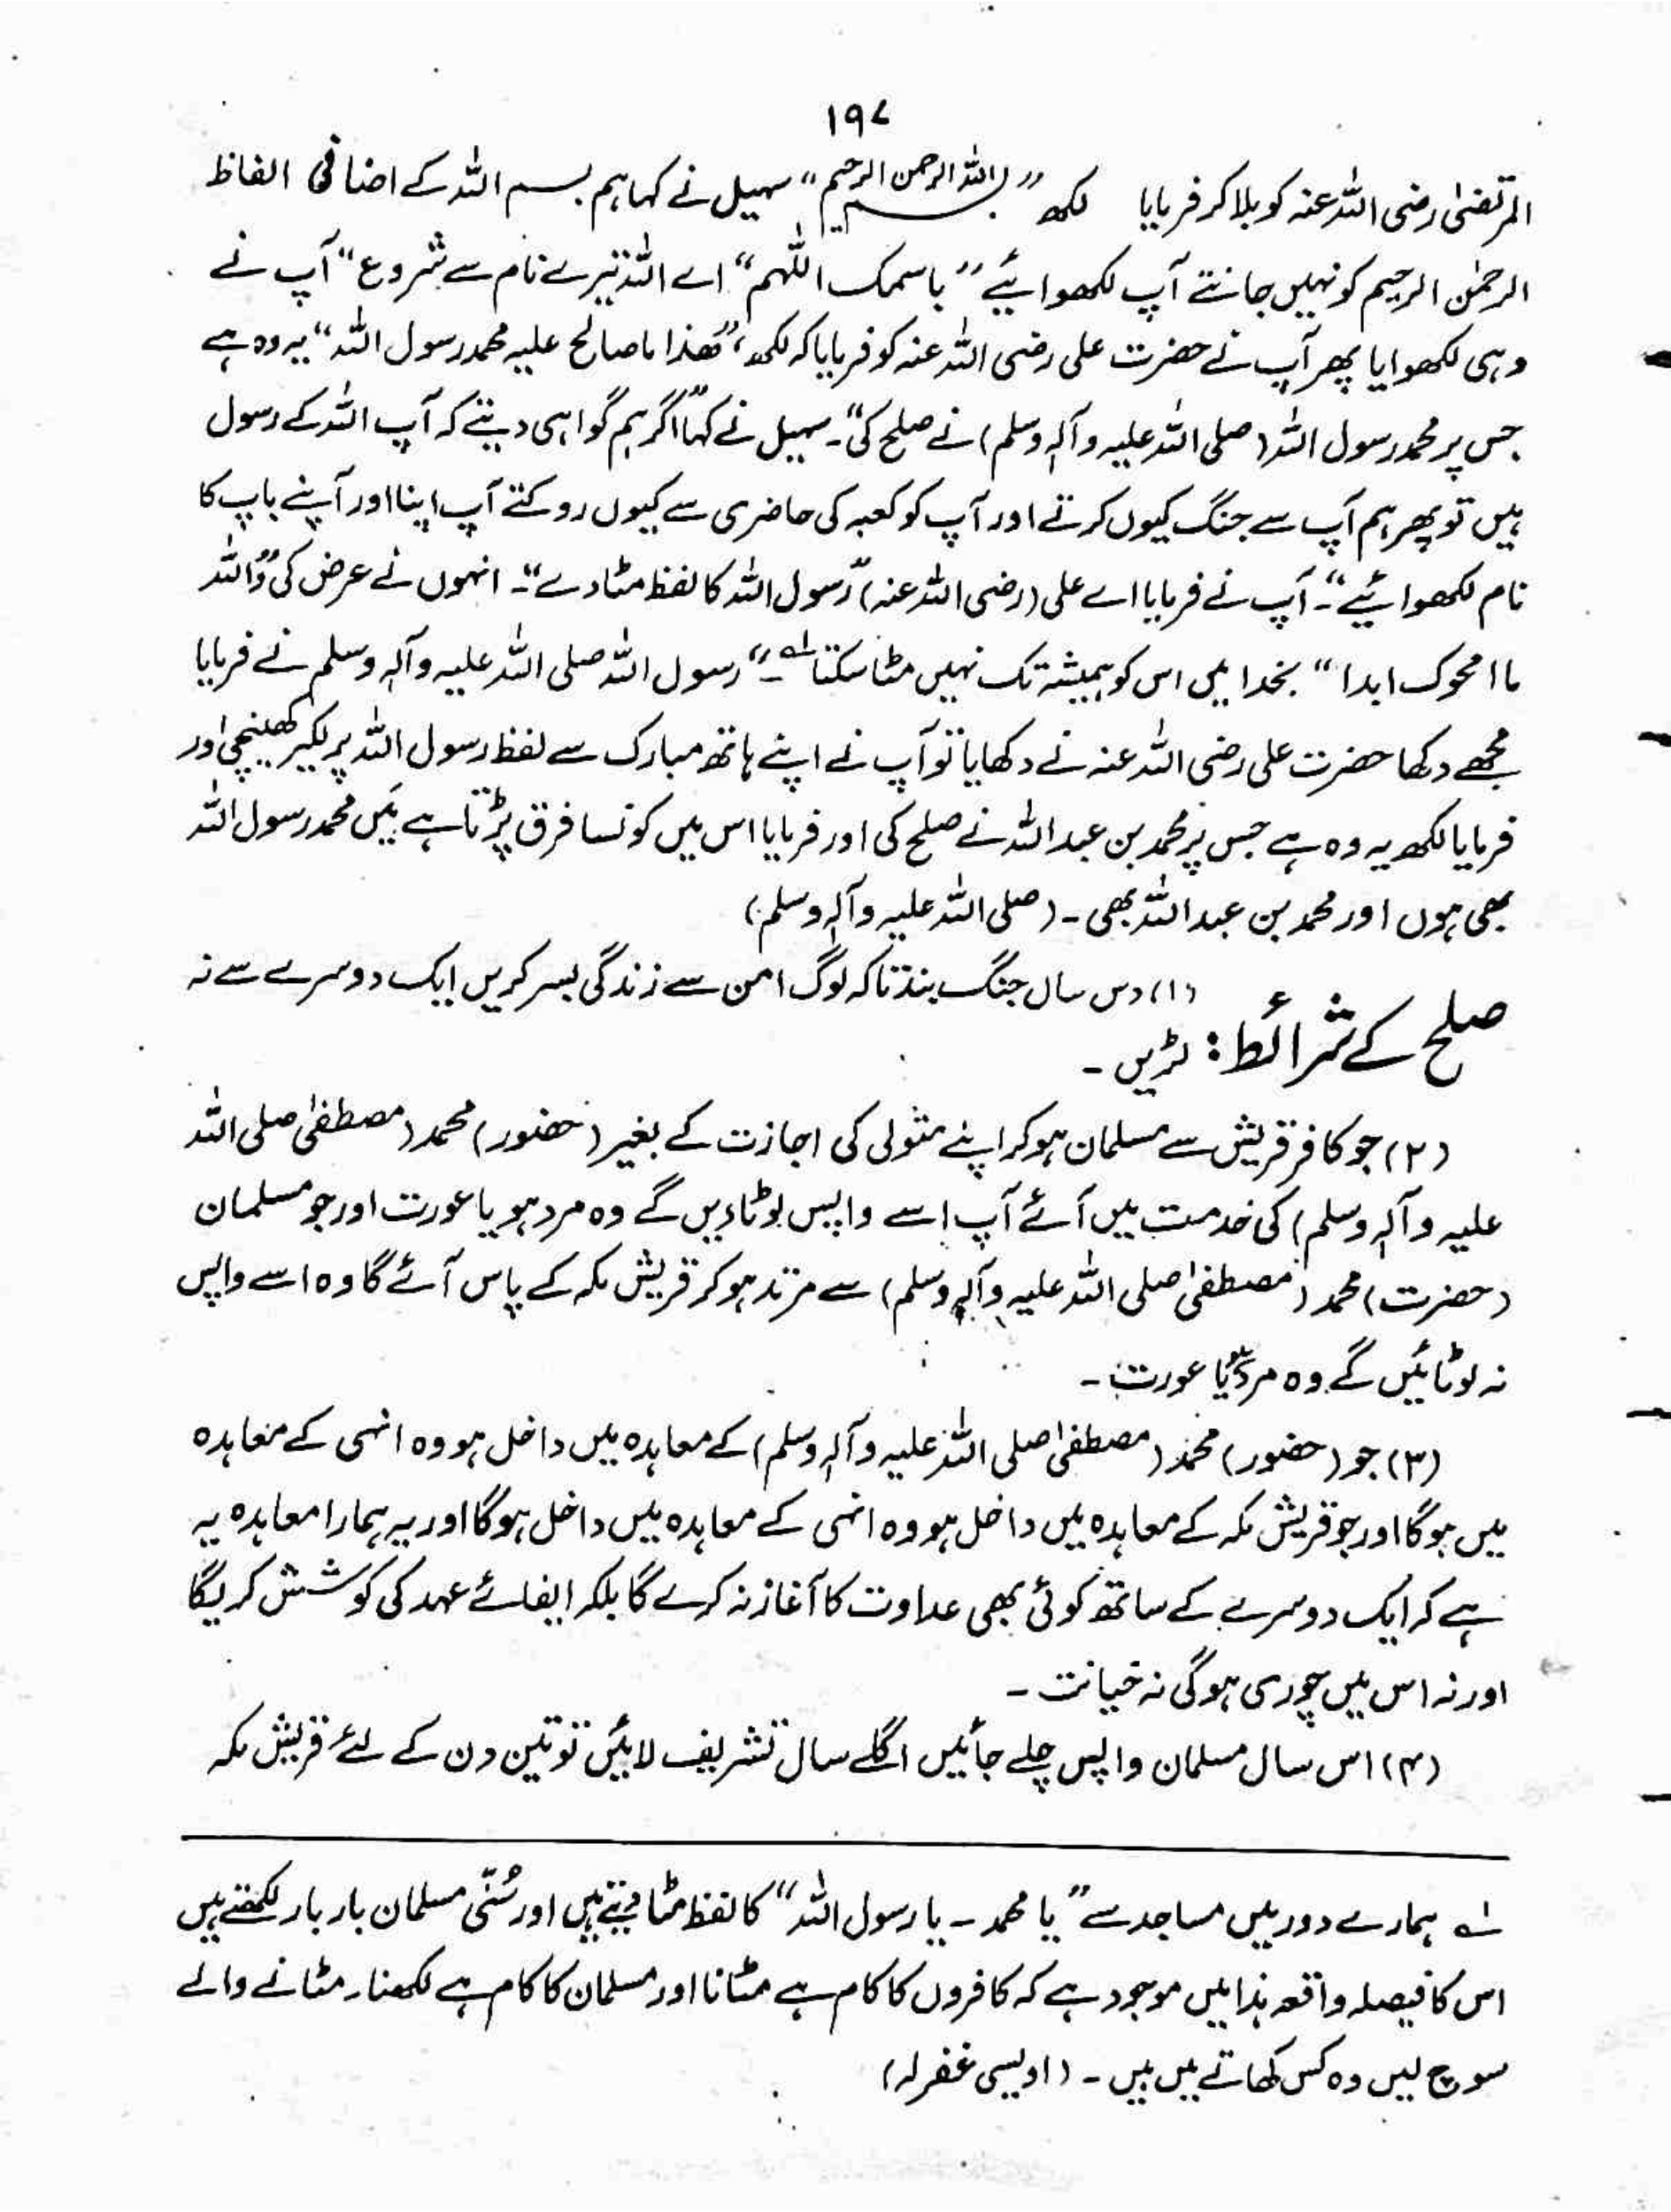 ۱۹۷
المرتضیٰ رضی اللہ عنہ کو بلا کر فرمایا لکھ ”بسم اللہ الرحمن الرحیم“ سہیل نے کہا ہم بسم اللہ کے اضافی الفاظ
الرحمٰن الرحیم کو نہیں جانتے آپ لکھوائیے ”باسمک اللہم“ اے اللہ تیرے نام سے شروع“ آپ نے
وہی لکھوایا پھر آپ نے حضرت علی رضی اللہ عنہ کو فرمایا کہ لکھ، ”ھذا ما صالح علیہ محمد رسول اللہ“ یہ وہ ہے
جس پر محمد رسول اللہ (صلی اللہ علیہ وآلہٖ وسلم) نے صلح کی“۔ سہیل نے کہا ”اگر ہم گواہی دیتے کہ آپ اللہ کے رسول
ہیں تو پھر ہم آپ سے جنگ کیوں کرتے اور آپ کو کعبہ کی حاضری سے کیوں روکتے آپ اپنا اور اپنے باپ کا
نام لکھوائیے“۔ آپ نے فرمایا اے علی (رضی اللہ عنہ) ”رسول اللہ کا لفظ مٹا دے“۔ انہوں نے عرض کی ”واللہ
ما امحوک ابدا“ بخدا میں اس کو ہمیشہ تک نہیں مٹا سکتا لے۔“ رسول اللہ صلی اللہ علیہ وآلہٖ وسلم نے فرمایا
مجھے دکھا حضرت علی رضی اللہ عنہ نے دکھایا تو آپ نے اپنے ہاتھ مبارک سے لفظ رسول اللہ پر لکیر کھینچی اور
فرمایا لکھ یہ وہ ہے جس پر محمد بن عبداللہ نے صلح کی اور فرمایا اس میں کونسا فرق پڑتا ہے میں محمد رسول اللہ
بھی ہوں اور محمد بن عبداللہ بھی۔ (صلی اللہ علیہ وآلہٖ وسلم)
صلح کے شرائط: (۱) دس سال جنگ بند تاکہ لوگ امن سے زندگی بسر کریں ایک دوسرے سے نہ
لڑیں۔
(۲) جو کافر قریش سے مسلمان ہو کر اپنے متولی کی اجازت کے بغیر (حضور) محمد (مصطفیٰ صلی اللہ
علیہ وآلہٖ وسلم) کی خدمت میں آئے آپ اسے واپس لوٹا دیں گے وہ مرد ہو یا عورت اور جو مسلمان
(حضرت) محمد (مصطفیٰ صلی اللہ علیہ وآلہٖ وسلم) سے مرتد ہو کر قریش مکہ کے پاس آئے گا وہ اسے واپس
نہ لوٹائیں گے وہ مرد ہو یا عورت۔
(۳) جو (حضور) محمد (مصطفیٰ صلی اللہ علیہ وآلہٖ وسلم) کے معاہدہ میں داخل ہو وہ انہی کے معاہدہ
میں ہوگا اور جو قریش مکہ کے معاہدہ میں داخل ہو وہ انہی کے معاہدہ میں داخل ہوگا اور یہ ہمارا معاہدہ یہ
ہے کہ ایک دوسرے کے ساتھ کوئی بھی عداوت کا آغاز نہ کرے گا بلکہ ایفائے عہد کی کوشش کریگا
اور نہ اس میں چوری ہوگی نہ خیانت۔
(۴) اس سال مسلمان واپس چلے جائیں اگلے سال تشریف لائیں تو تین دن کے لئے قریش مکہ
لے ہمارے دور میں مساجد سے ”یا محمد۔ یا رسول اللہ“ کا لفظ مٹا دیتے ہیں اور سُنّی مسلمان بار بار لکھتے ہیں
اس کا فیصلہ واقعہ ہٰذا میں موجود ہے کہ کافروں کا کام ہے مٹانا اور مسلمان کا کام ہے لکھنا۔ مٹانے والے
سوچ لیں وہ کس کھاتے میں ہیں۔ (اویسی غفرلہ)